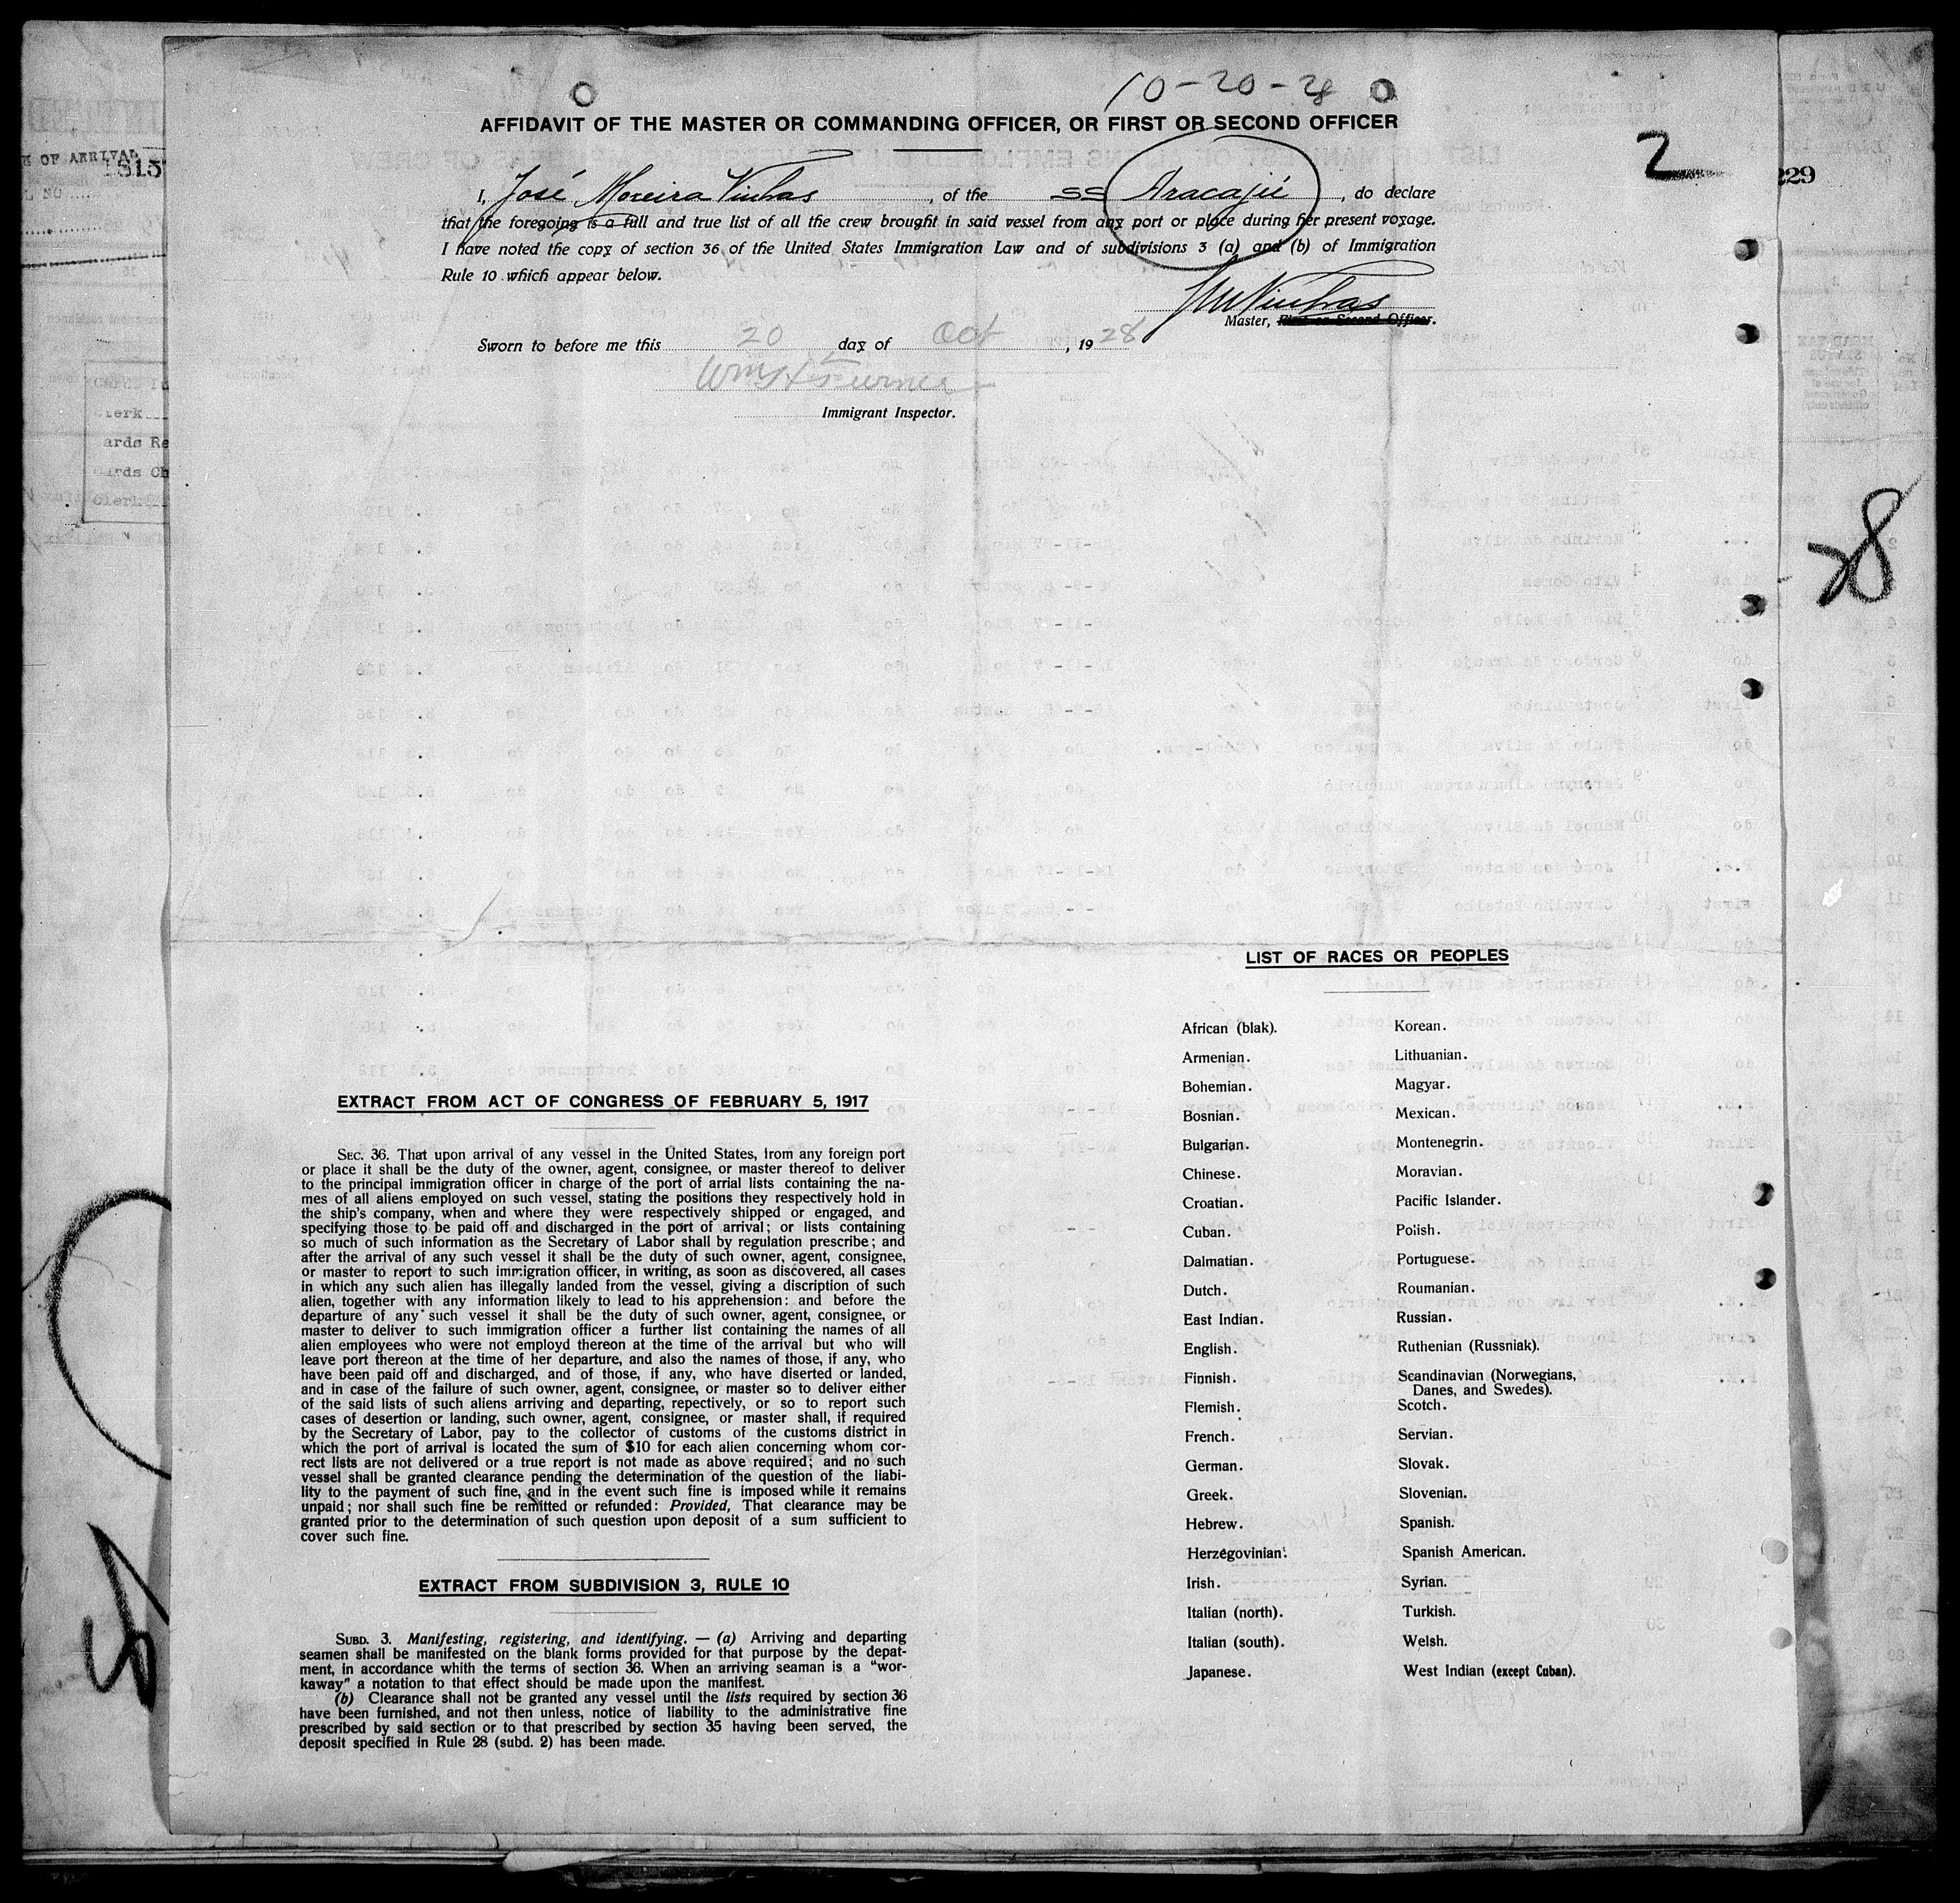 10-20-28
AFFIDAVIT OF THE MASTER OR COMMANDING OFFICER, OR FIRST OR SECOND OFFICER
2
OF ARRIVAL
1815
229
I, José Moreira Vinhas, of the SS Aracajú, do declare
that the foregoing is a full and true list of all the crew brought in said vessel from any port or place during her present voyage.
I have noted the copy of section 36 of the United States Immigration Law and of subdivisions 3 (a) and (b) of Immigration
Rule 10 which appear below.
JMVinhas
Master, First or Second Officer.
Sworn to before me this 20 day of Oct, 1928
Immigrant Inspector.
28
LIST OF RACES OR PEOPLES
African (blak).
Armenian.
Bohemian.
Bosnian.
Bulgarian.
Chinese.
Croatian.
Cuban.
Dalmatian.
Dutch.
East Indian.
English.
Finnish.
Flemish.
French.
German.
Greek.
Hebrew.
Herzegovinian.
Irish.
Italian (north).
Italian (south).
Japanese.
Korean.
Lithuanian.
Magyar.
Mexican.
Montenegrin.
Moravian.
Pacific Islander.
Polish.
Portuguese.
Roumanian.
Russian.
Ruthenian (Russniak).
Scandinavian (Norwegians,
Danes, and Swedes).
Scotch.
Servian.
Slovak.
Slovenian.
Spanish.
Spanish American.
Syrian.
Turkish.
Welsh.
West Indian (except Cuban).
EXTRACT FROM ACT OF CONGRESS OF FEBRUARY 5, 1917
SEC. 36. That upon arrival of any vessel in the United States, from any foreign port
or place it shall be the duty of the owner, agent, consignee, or master thereof to deliver
to the principal immigration officer in charge of the port of arrial lists containing the na-
mes of all aliens employed on such vessel, stating the positions they respectively hold in
the ship's company, when and where they were respectively shipped or engaged, and
specifying those to be paid off and discharged in the port of arrival; or lists containing
so much of such information as the Secretary of Labor shall by regulation prescribe; and
after the arrival of any such vessel it shall be the duty of such owner, agent, consignee,
or master to report to such immigration officer, in writing, as soon as discovered, all cases
in which any such alien has illegally landed from the vessel, giving a discription of such
alien, together with any information likely to lead to his apprehension: and before the
departure of any such vessel it shall be the duty of such owner, agent, consignee, or
master to deliver to such immigration officer a further list containing the names of all
alien employees who were not employd thereon at the time of the arrival but who will
leave port thereon at the time of her departure, and also the names of those, if any, who
have been paid off and discharged, and of those, if any, who have diserted or landed,
and in case of the failure of such owner, agent, consignee, or master so to deliver either
of the said lists of such aliens arriving and departing, repectively, or so to report such
cases of desertion or landing, such owner, agent, consignee, or master shall, if required
by the Secretary of Labor, pay to the collector of customs of the customs district in
which the port of arrival is located the sum of $10 for each alien concerning whom cor-
rect lists are not delivered or a true report is not made as above required; and no such
vessel shall be granted clearance pending the determination of the question of the liabi-
lity to the payment of such fine, and in the event such fine is imposed while it remains
unpaid; nor shall such fine be remitted or refunded: Provided, That clearance may be
granted prior to the determination of such question upon deposit of a sum sufficient to
cover such fine.
EXTRACT FROM SUBDIVISION 3, RULE 10
SUBD. 3. Manifesting, registering, and identifying. — (a) Arriving and departing
seamen shall be manifested on the blank forms provided for that purpose by the depat-
ment, in accordance whith the terms of section 36. When an arriving seaman is a "wor-
kaway" a notation to that effect should be made upon the manifest.
(b) Clearance shall not be granted any vessel until the lists required by section 36
have been furnished, and not then unless, notice of liability to the administrative fine
prescribed by said section or to that prescribed by section 35 having been served, the
deposit specified in Rule 28 (subd. 2) has been made.